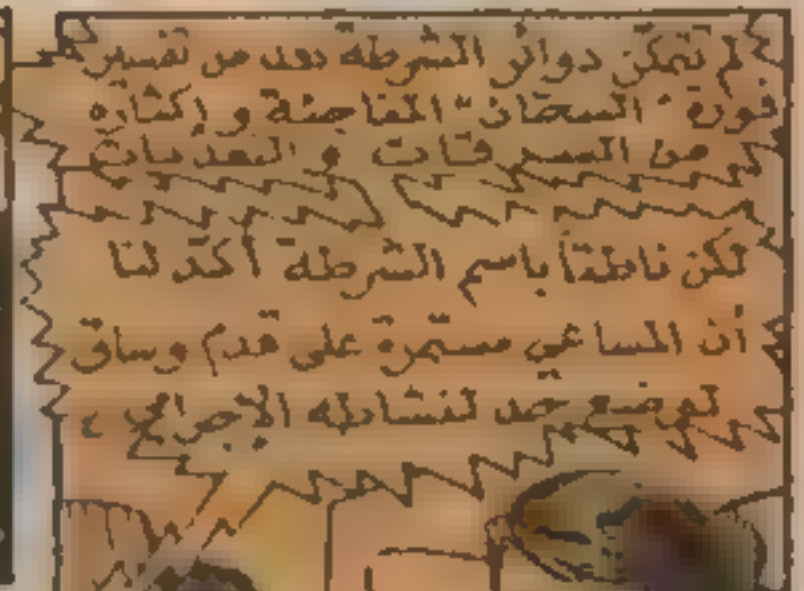 لم تتمكن دوائر الشرطة بعد من تفسير
قوة " السجان " الغامضة و إكثاره
من السـر قات و التعديات
لكن ناطقاً باسم الشرطة أكد لنا
أن المساعي مستمرة على قدم وساق
لوضع حد لنشاطه الإجرامي